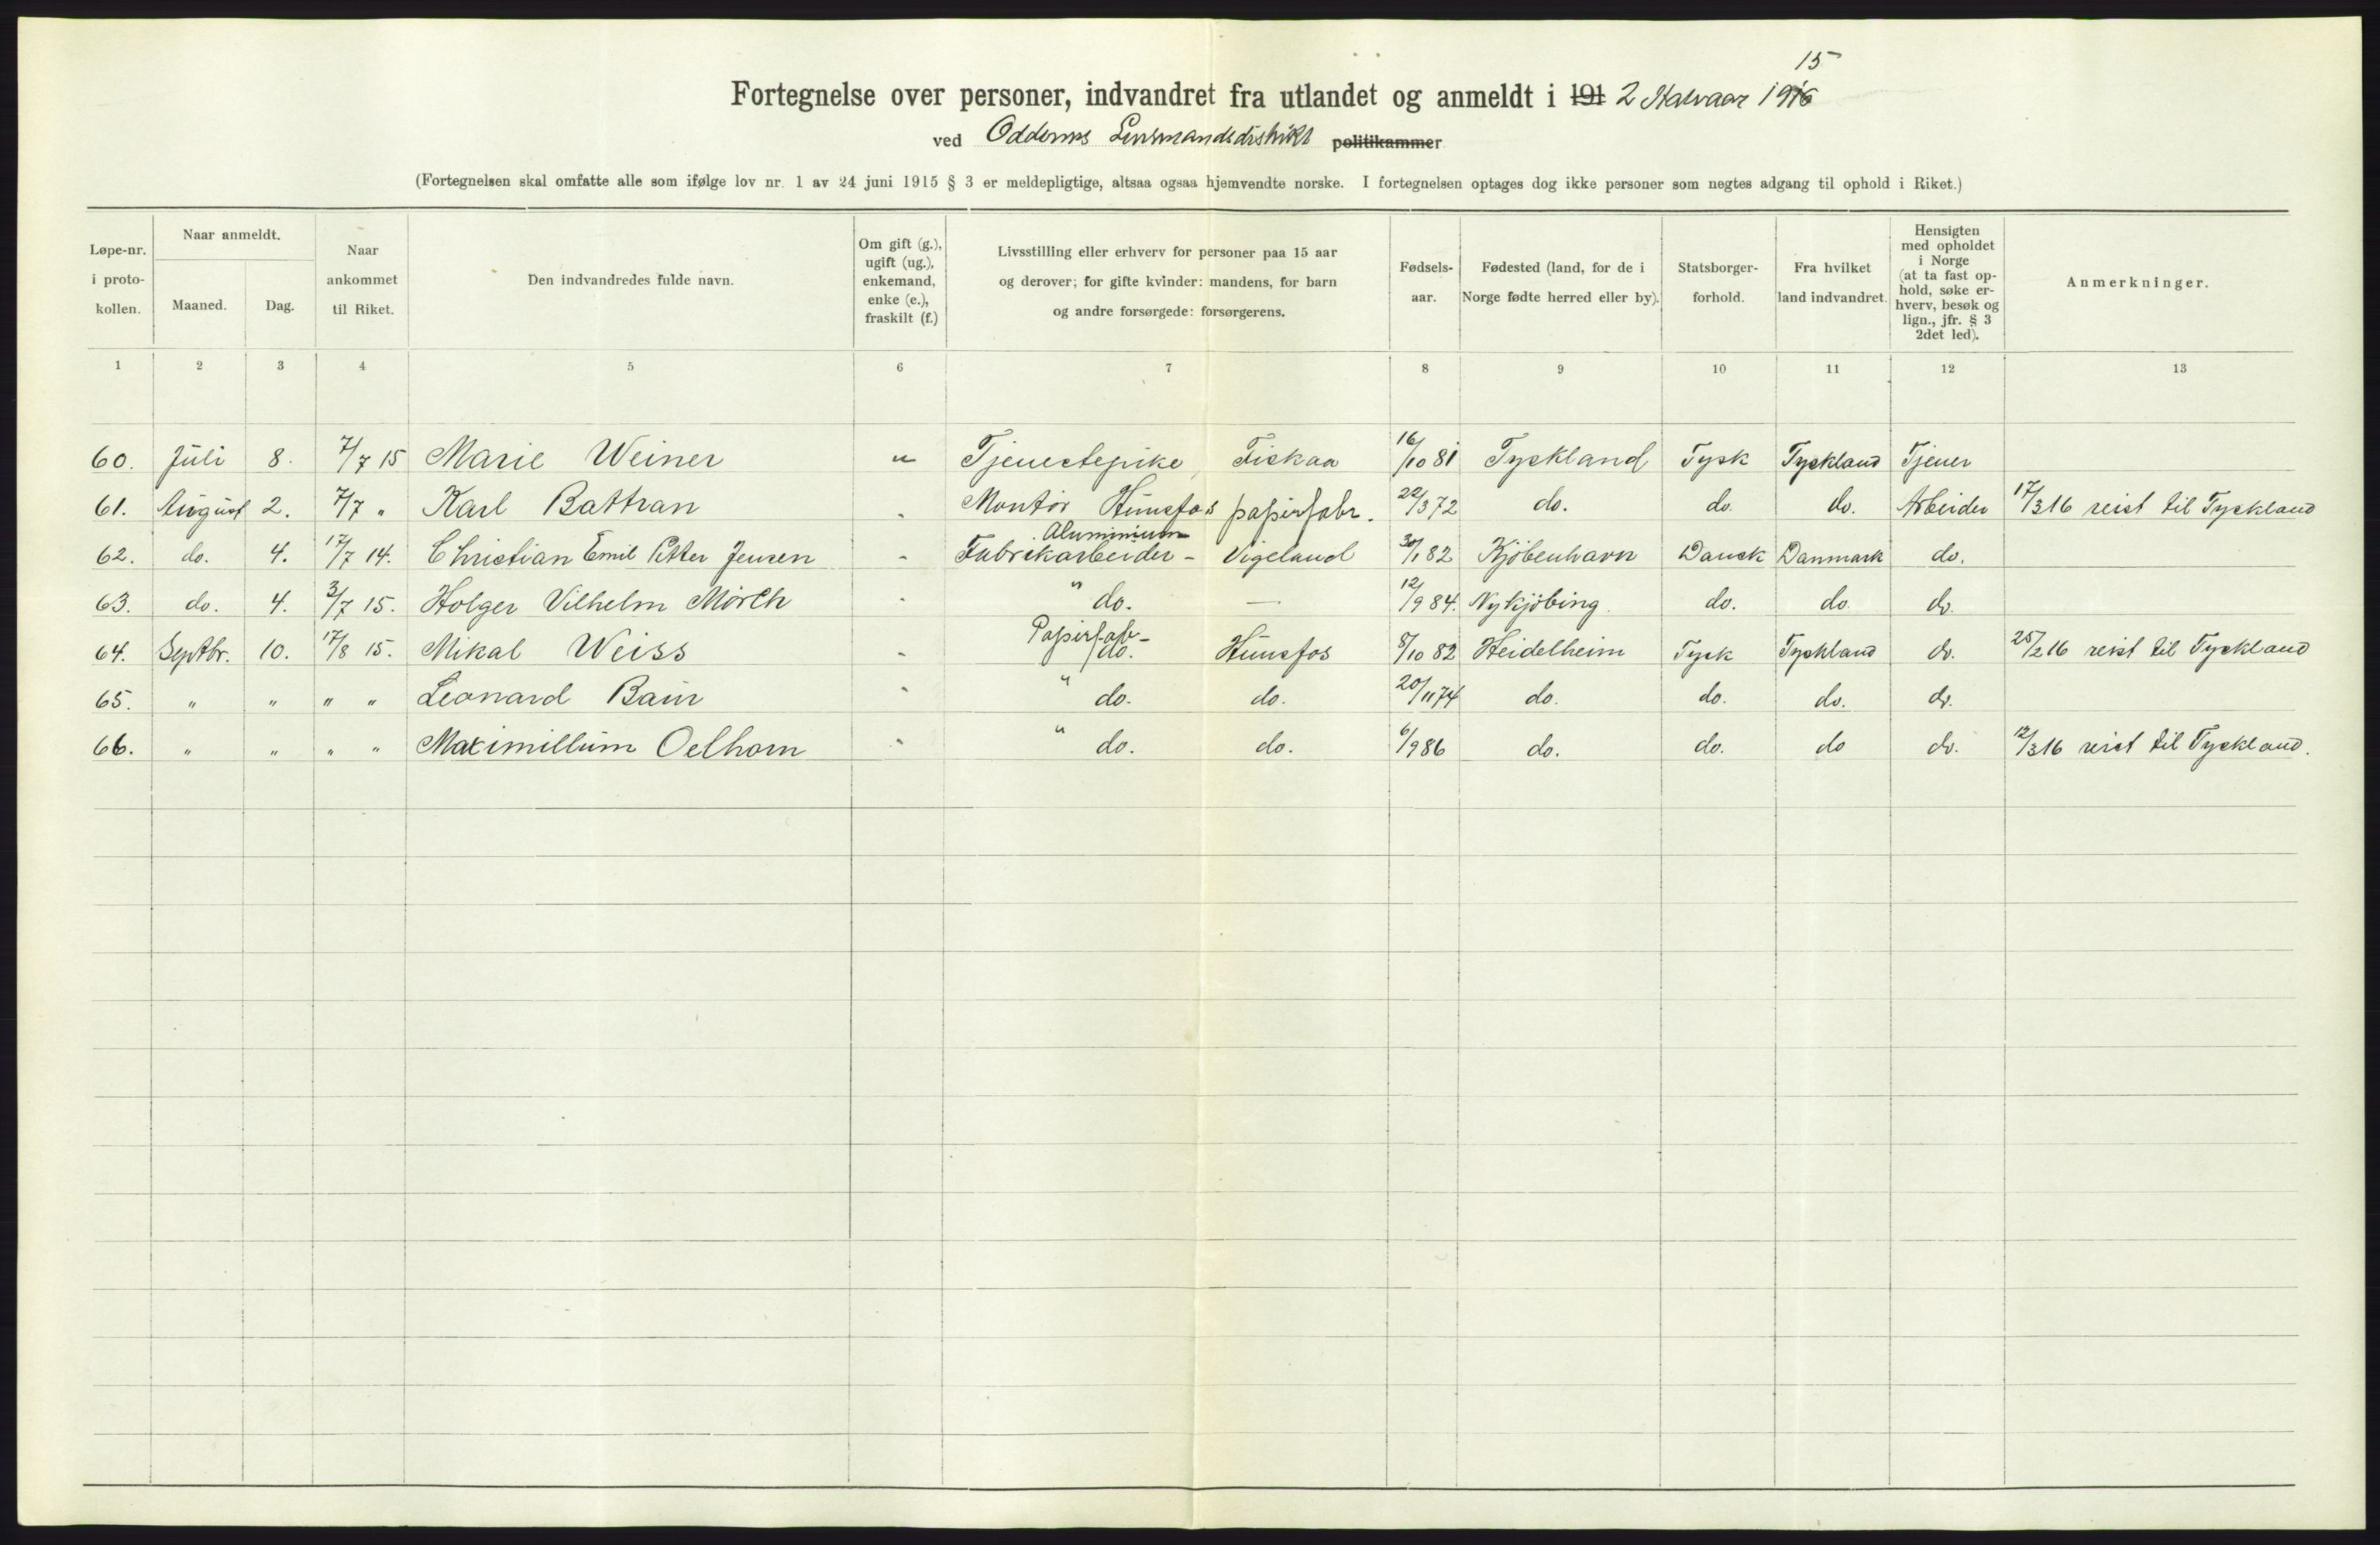 15
Fortegnelse over personer, indvandret fra utlandet og anmeldt i 191 2 Halvaar 1916
ved Oddernes Lensmandsdistrikt politikammer
(Fortegnelsen skal omfatte alle som ifølge lov nr. 1 av 24 juni 1915 § 3 er meldepligtige, altsaa ogsaa hjemvendte norske. I fortegnelsen optages dog ikke personer som negtes adgang til ophold i Riket.)
Løpe-nr. i proto- kollen.
Naar anmeldt.
Maaned.
Dag.
Naar ankommet til Riket.
Den indvandredes fulde navn.
Om gift (g.), ugift (ug.), enkemand, enke (e.), fraskilt (f.)
Livsstilling eller erhverv for personer paa 15 aar og derover; for gifte kvinder: mandens, for barn og andre forsørgede: forsørgerens.
Fødsels- aar.
Fødested (land, for de i Norge fødte herred eller by).
Statsborger- forhold.
Fra hvilket land indvandret.
Hensigten med opholdet i Norge (at ta fast op- hold, søke er- hverv, besøk og lign., jfr. § 3 2det led).
Anmerkninger.
1 2 3 4 5 6 7 8 9 10 11 12 13
60. Juli 8. 7/7 15 Marie Weiner " Tjenestepike, Fiskaa 16/10 81 Tyskland Tysk Tyskland Tjener
61. August 2. 7/7 " Karl Battran - Montör Hunsfos papirfabr. 22/3 72 do. do. do. Arbeider 17/3 16 reist til Tyskland
Aluminium
62. do. 4. 17/7 14. Christian Emil Petter Jensen - Fabrikarbeider - Vigeland 30/1 82 Kjöbenhavn Dansk Danmark do.
63. do. 4. 3/7 15. Holger Vilhelm Mörch - " do. — 12/9 84. Nykjöbing. do. do. do.
Papirfab-
64. Septbr. 10. 17/8 15. Mikal Weiss - do. Hunsfos 8/10 82 Heidelheim Tysk Tyskland do. 25/2 16 reist til Tyskland
65. " " " " Leonard Baur - " do. do. 20/11 74 do. do. do. do.
66. " " " " Maximillum Oelhorn - " do. do. 6/9 86 do. do. do do. 12/3 16 reist til Tyskland.